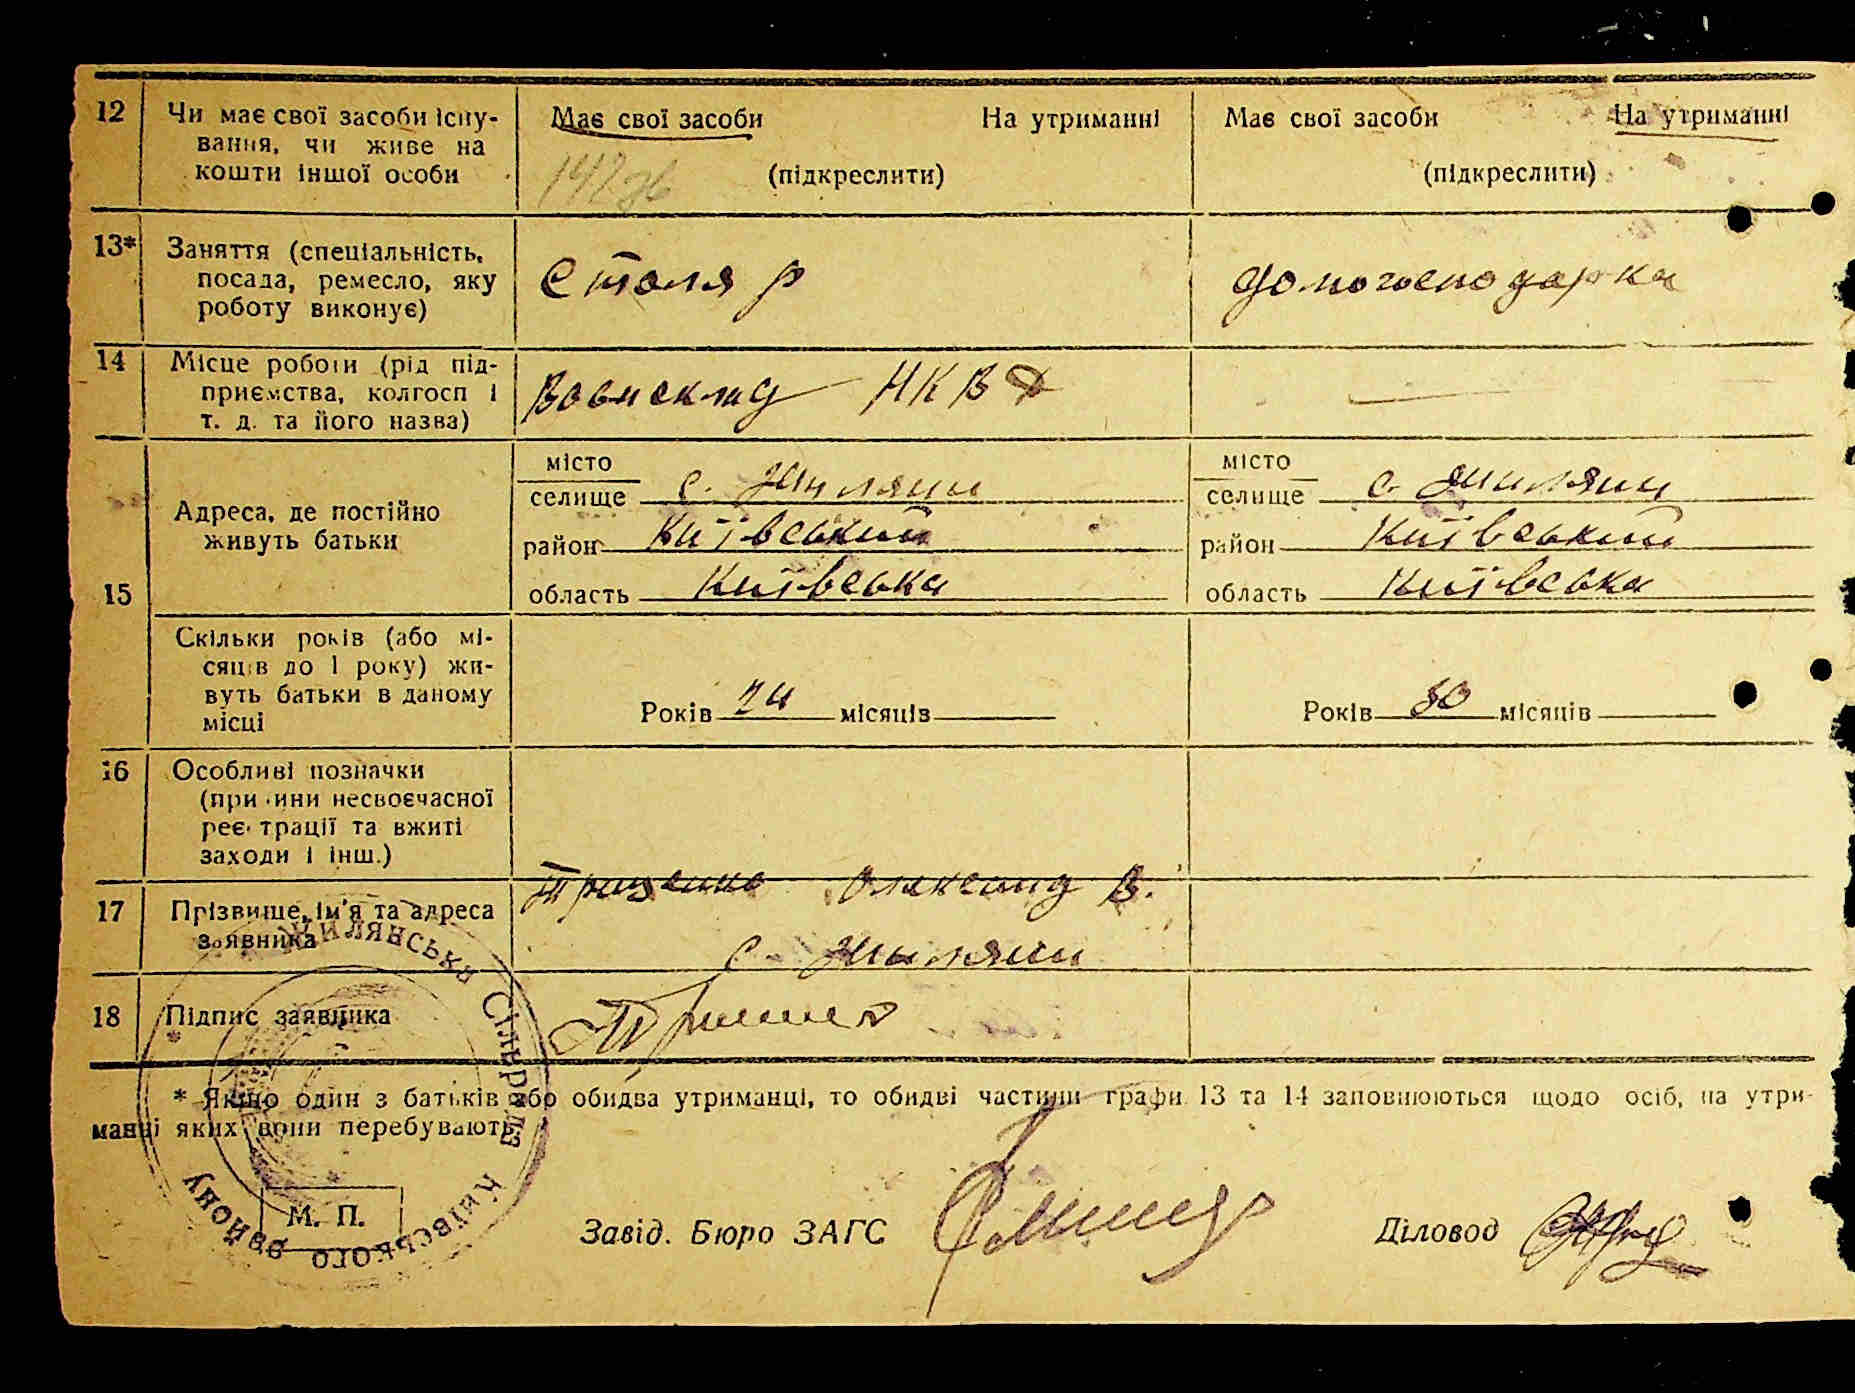 12 Чи має свої засоби існу-
вання, чи живе на
кошти іншої особи
Має свої засоби На утриманні
(підкреслити)
Має свої засоби На утриманні
(підкреслити)
13* Заняття (спеціальність,
посада, ремесло, яку
роботу виконує)
Столяр
домогосподарка
14 Місце роботи (рід під-
приємства, колгосп і
т. д. та його назва)
Воєнсклад НКВ
15 Адреса, де постійно
живуть батьки
місто
селище с. Жиляни
район Київський
область Київська
місто
селище с. Жиляни
район Київський
область Київська
Скільки років (або мі-
сяців до 1 року) жи-
вуть батьки в даному
місці
Років 24 місяців
Років 30 місяців
16 Особливі позначки
(причини несвоєчасної
реєстрації та вжиті
заходи і інш.)
17 Прізвище, ім'я та адреса
заявника
Олександ В.
с. Жиляни
18 Підпис заявника
* Якщо один з батьків або обидва утриманці, то обидві частини графи 13 та 14 заповнюються щодо осіб, на утри-
манні яких вони перебувають.
Жилянська Сільрада Київського району
М. П.
Завід. Бюро ЗАГС
Діловод